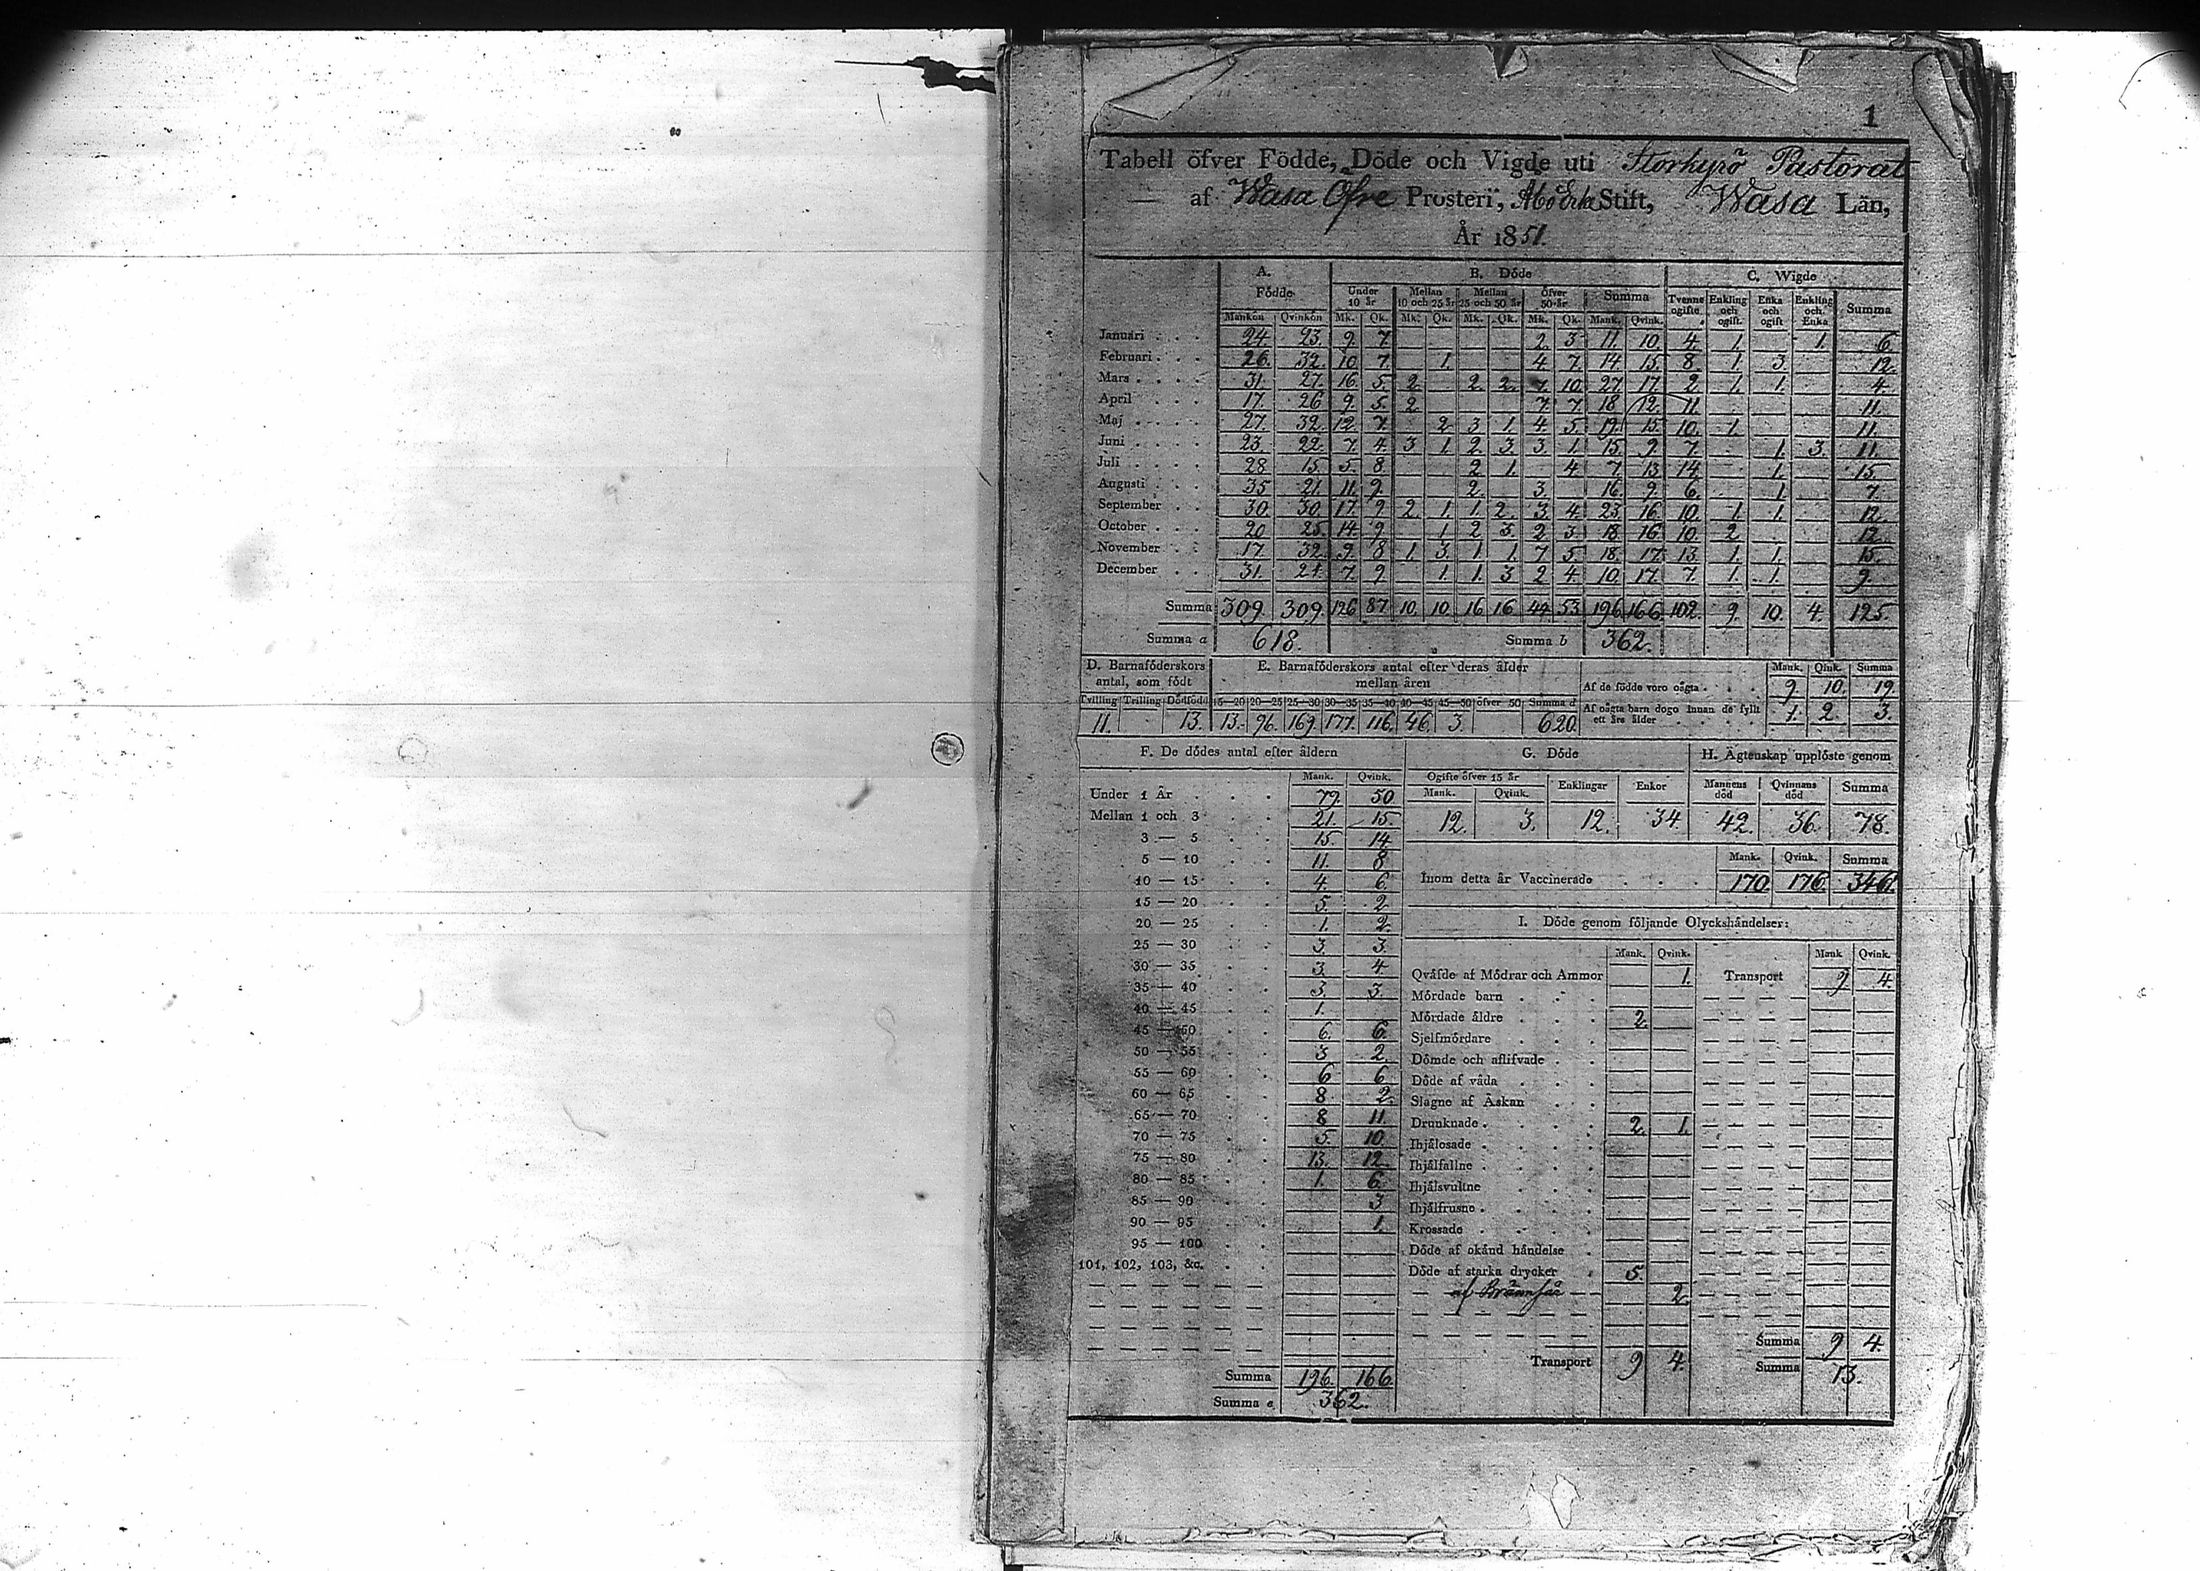 1
Tabell öfver Födde, Döde och Vigde uti Storkyrö Pastorat
— af Wasa Öfre Prosteri, Åbo Erke Stift, Wasa Län,
År 1851.
A. Födde B. Döde C. Wigde
Under 10 år Mellan 10 och 25 år Mellan 25 och 50 år Öfver 50 år Summa Tvenne ogifte Enkling och ogift. Enka och ogift Enkling och Enka Summa
Mankön Qvinkön Mk. Qk. Mk. Qk. Mk. Qk. Mk. Qk. Mank. Qvink.
Januari 24 23. 9. 7 2 3 11. 10. 4 1. 1. 6
Februari 26. 32. 10 7. 1. 4 7. 14 15. 8. 1. 3. 12.
Mars 31. 27. 16. 5. 2. 2. 2. 7. 10. 27. 17. 2. 1. 1. 4.
April 17. 26 9. 5. 2. 7. 7. 18 12. 11 11.
Maj 27. 32. 12. 7. 2 3 1. 4. 5. 19. 15. 10. 1. 11.
Juni 23. 22. 7. 4. 3 1. 2. 3. 3 1. 15. 9. 7. 1. 3. 11.
Juli 28 15. 5. 8. 2 1. 4. 7. 13. 14. 1. 15.
Augusti 35 21. 11. 9. 2. 3. 16. 9. 6. 1. 7.
September 30. 30. 17. 9 2. 1. 1. 2. 3. 4. 23 16. 10. 1. 1. 12.
October 20 25. 14. 9. 1 2 3. 2 3. 18. 16. 10. 2. 12.
November 17. 32. 9. 8 1. 3. 1. 1. 7. 5. 18. 17. 13. 1. 1. 15.
December 31. 24. 7. 9. 1. 1. 3 2 4. 10. 17. 7. 1. 1. 9.
Summa 309. 309. 126 87. 10. 10. 16 16 44 53. 196. 166. 102. 9. 10. 4. 125.
Summa a 618. Summa b 362.
D. Barnaföderskors antal, som födt
Tvilling Trilling Dödfödd
11. 13.
E. Barnaföderskors antal efter deras ålder mellan åren
15—20 20—25 25—30 30—35 35—40 40—45 45—50 öfver 50 Summa d
13. 96. 169. 177. 116. 46. 3. 620.
Mank. Qink. Summa
Af de födde voro oägta 9. 10. 19.
Af oägta barn dogo innan de fyllt ett års ålder 1. 2. 3.
F. De dödes antal efter åldern
Mank. Qvink.
Under 1 År 79. 50.
Mellan 1 och 3 21. 15.
3 — 5 15. 14
5 — 10 11. 8
10 — 15 4. 6.
15 — 20 5. 2
20 — 25 1. 2.
25 — 30 3. 3.
30 — 35 3. 4
35 — 40 3. 3.
40 — 45 1.
45 — 50 6. 6.
50 — 55 3 2.
55 — 60 6 6
60 — 65 8 2.
65 — 70 8 11.
70 — 75 5. 10.
75 — 80 13. 12.
80 — 85 1. 6.
85 — 90 3
90 — 95 1.
95 — 100
101, 102, 103, &c.
Summa 196. 166.
Summa e 362.
G. Döde
Ogifte öfver 15 år Enklingar Enkor
Mank. Qvink.
12. 3. 12. 34.
H. Ägtenskap upplöste genom
Mannens död Qvinnans död Summa
42. 36. 78.
Mank. Qvink. Summa
Inom detta år Vaccinerade 170. 176. 346.
I. Döde genom följande Olyckshändelser:
Mank. Qvink. Mank Qvink.
Qväfde af Mödrar och Ammor 1. Transport 9 4.
Mördade barn
Mördade äldre 2.
Sjelfmördare
Dömde och aflifvade
Döde af våda
Slagne af Åskan
Drunknade 2. 1.
Ihjälosade
Ihjälfallne
Ihjälsvultne
Ihjälfrusne
Krossade
Döde af okänd händelse
Döde af starka drycker 5.
2.
Summa 9 4.
Transport 9 4. Summa 13.